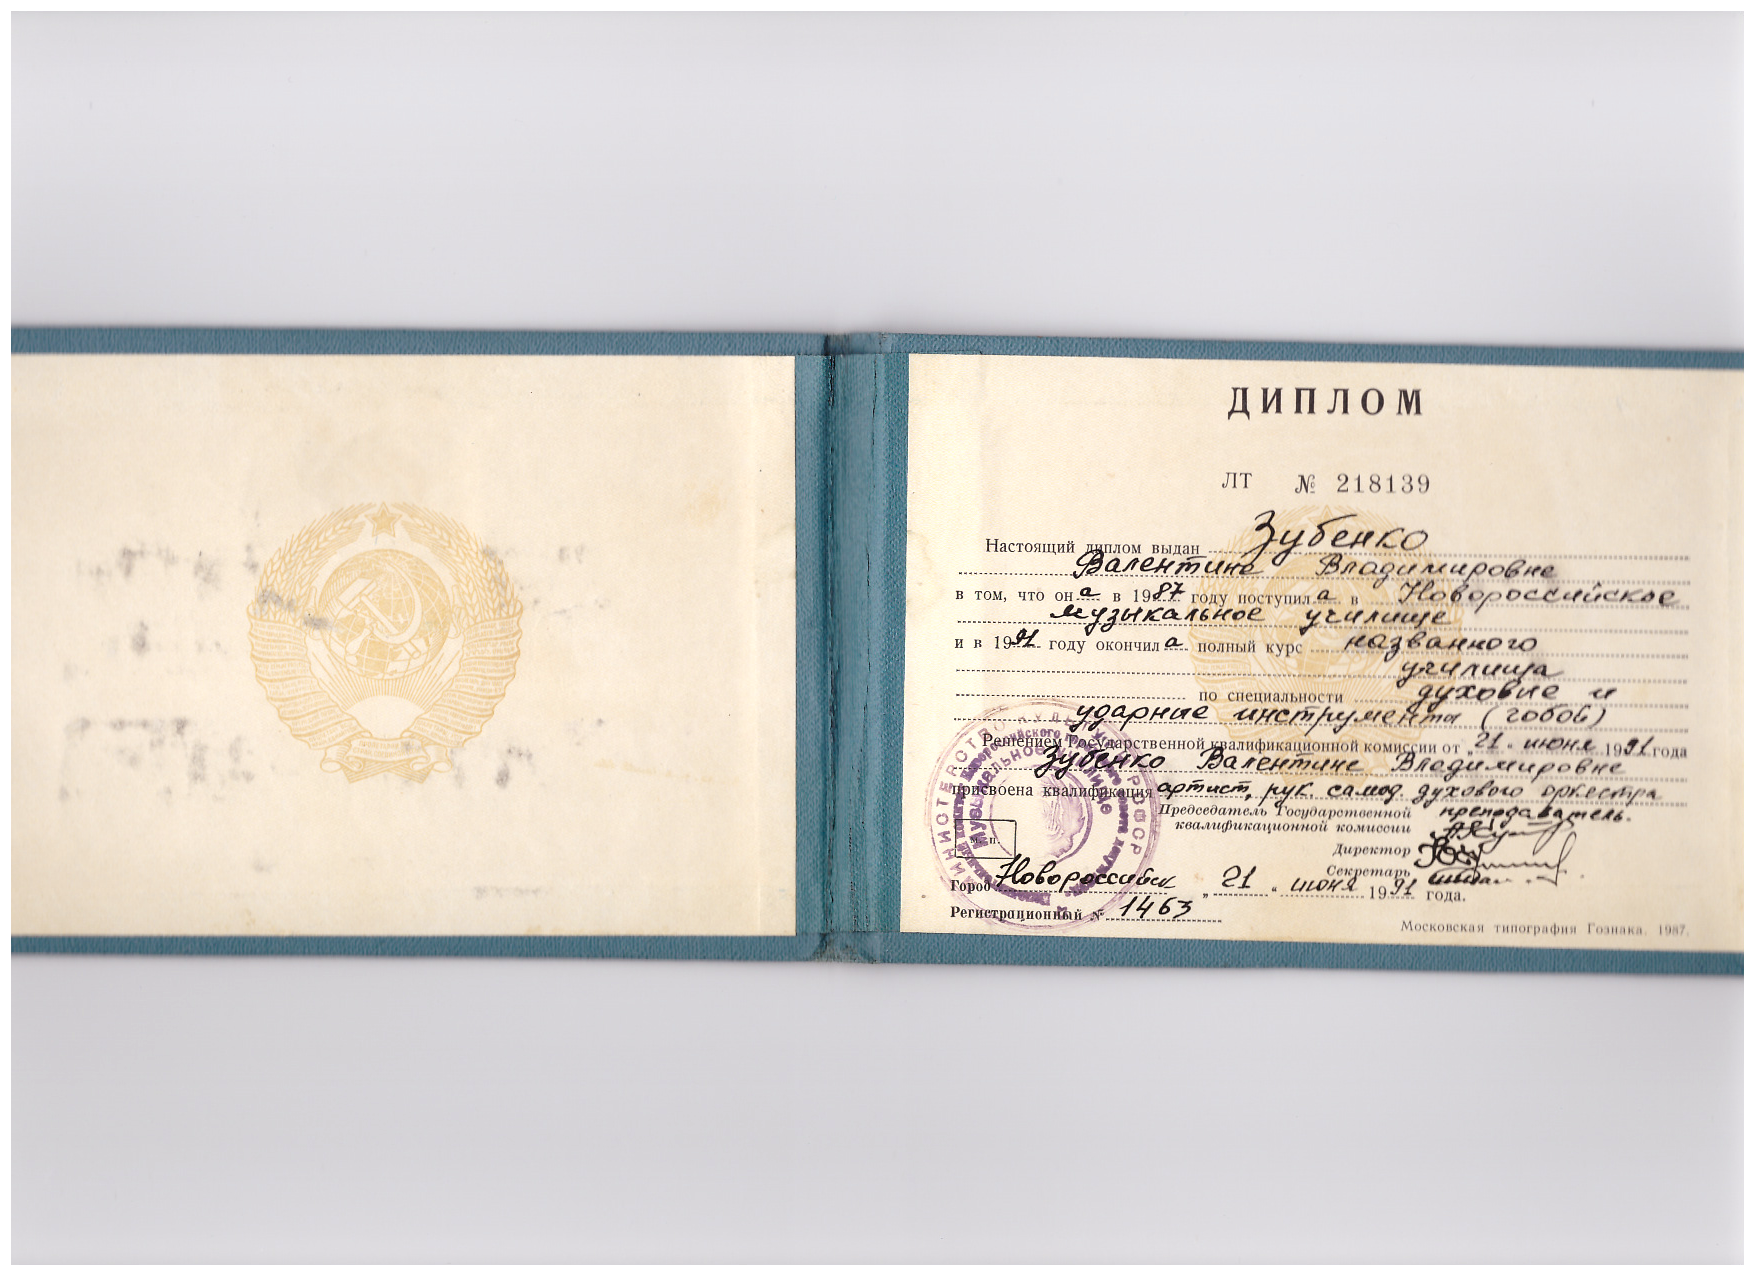 ДИПЛОМ
ЛТ № 218139
Настоящий диплом выдан Зубенко
Валентине Владимировне
в том, что она в 1987 году поступила в Новороссийское
музыкальное училище
и в 1991 году окончила полный курс названного
училища
по специальности духовые и
ударные инструменты (гобой)
Решением Государственной квалификационной комиссии от „21" июня 1991 года
Зубенко Валентине Владимировне
присвоена квалификация артист, рук. самод. духового оркестра
преподаватель.
Председатель Государственной
квалификационной комиссии
Директор
Секретарь
М. П.
Город Новороссийск „21" июня 1991 года.
Регистрационный № 1463
Московская типография Гознака. 1987.
МИНИСТЕРСТВО КУЛЬТУРЫ РСФСР
Музыкальное училище